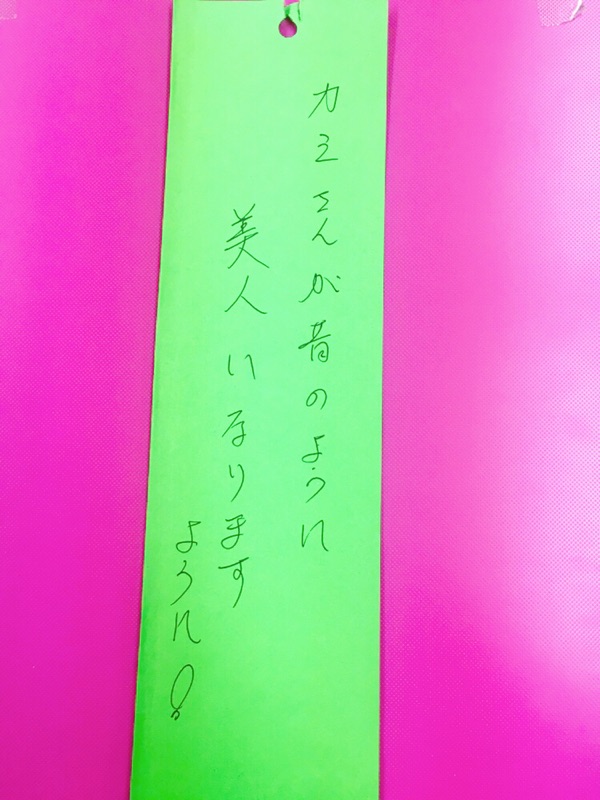 カミさんが昔のように
美人になります
ように!